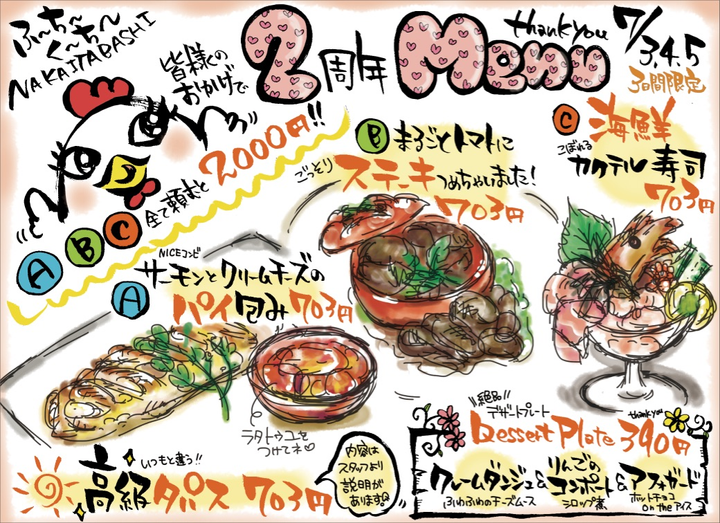 ふ~ち~
く~ち~
NAKAITABASHI
皆様の
おかげで
2周年 Menu
thank you
7/3,4,5
3日間限定
A B C 全て頼むと
2000円!!
B まるごとトマトに
ごっそり ステーキ つめちゃいました!
703円
C 海鮮
こぼれる
カクテル寿司
703円
NICEコンビ
A サーモンとクリームチーズの
パイ包み 703円
ラタトゥユを
つけてネ♡
いつもと違う!!
高級タパス 703円
内容は
スタッフより
説明が
あります。
絶品
デザートプレート
Dessert Plate 390円
thank you
クレームダンジュ&
ふわふわのチーズムース
りんごの
コンポート&
シロップ煮
アフォガード
ホットチョコ
on the アイス